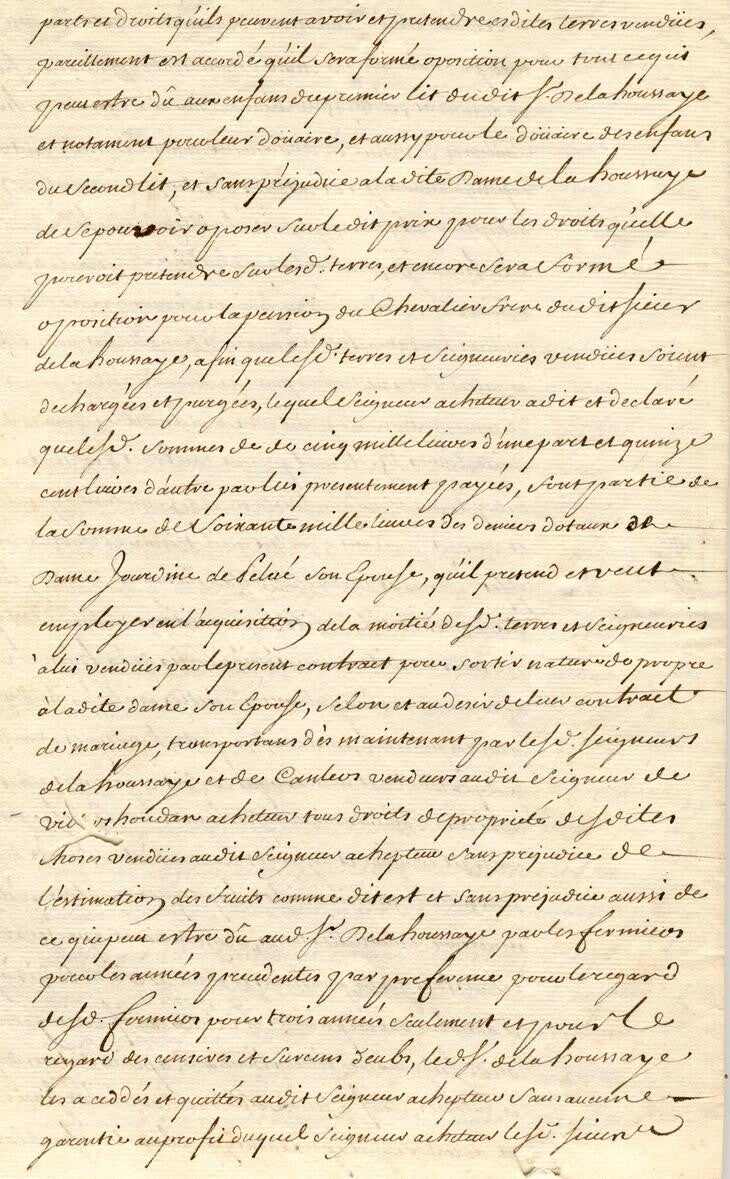 parts et droits qu'ils peuvent avoir et pretendre esdites terres vendües,
pareillement est accordé qu'il sera formé oposition pour tout ce qui
peut estre dû aux enfans du premier lit dudit Sr. De la houssaye
et notament pour leur doüaire, et aussy pour le doüaire des enfans
du Second lit, et sans préjudice a la dite Dame de la houssaye
de se pourvoir oposer sur le dit prix pour les droits qu'elle
pouroit pretendre sur lesd. terres, et encore sera formé
oposition pour la pension du Chevalier frere dudit sieur
de la houssaye, afin que lesd. terres et seigneuries vendües soient
dechargées et purgées, lequel Seigneur achetteur a dit et declaré
que lesd. sommes de de cinq mille livres d'une part et quinze
cent livres d'autre par lui presentement payées, sont partie de
la somme de Soixante mille livres des deniers dotaux de
Dame Jourdine de Pellué son Epouse, qu'il pretend et veut
employer en l'acquisition de la moitié desd. terres et seigneuries
à lui vendües par le present contract pour sortir nature de propre
à la dite dame son Epouse, selon et au desir de leur contract
de mariage, transportans dès maintenant par lesd. seigneurs
de la houssaye et de Canleos vendeurs audit Seigneur de
houdan achetteur tous droits de propriété desdites
choses vendües audit Seigneur achepteur sans prejudice de
l'estimation des fruits comme dit est et sans prejudice aussi de
ce qui peut estre dû aud. Sr. De la houssaye par les fermiers
pour les années precedentes par preference pour le regard
desd. fermiers pour trois années seulement et pour le
regard des censives et surcens deubs, led. Sr. de la houssaye
les a ceddés et quittés audit Seigneur achepteur sans aucune
garantie au profit duquel Seigneur achetteur lesd. sieurs